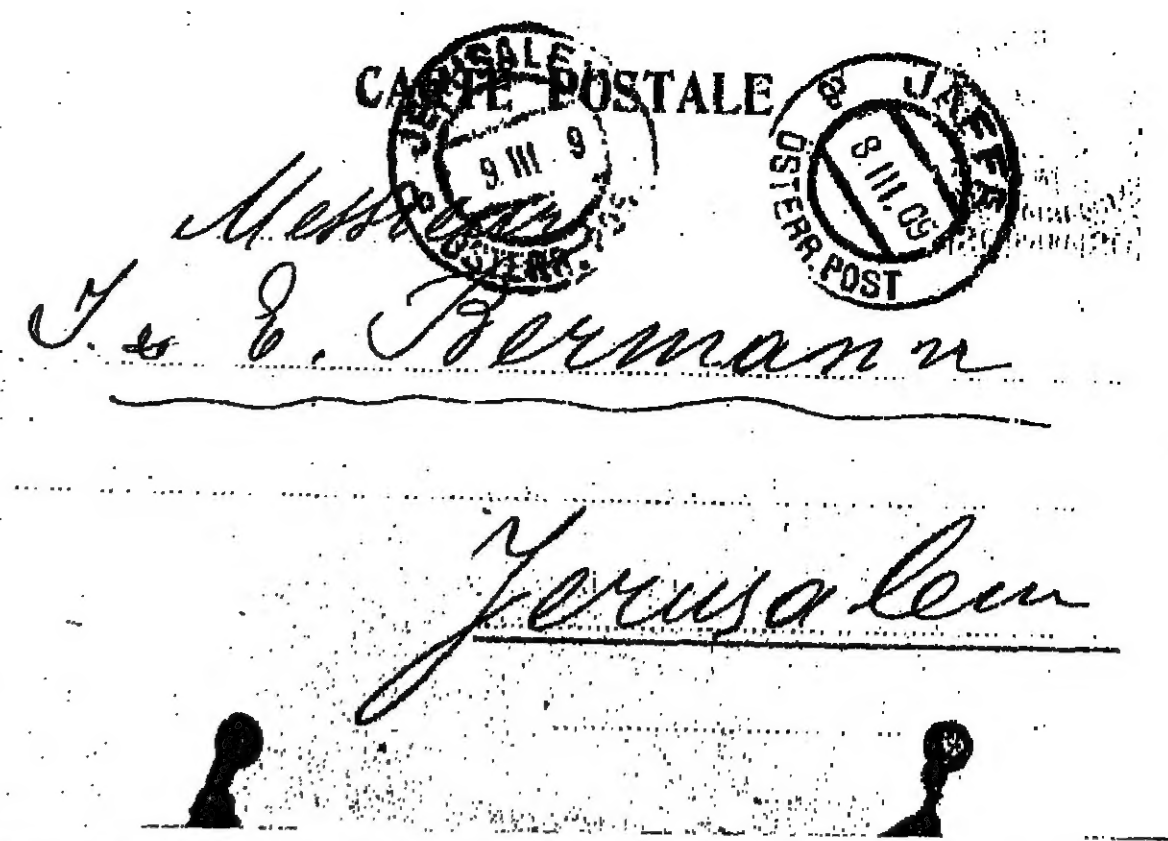 CARTE POSTALE
JERUSALEM
9. III 9
ÖSTERR. POST
JAFFA
8. III. 09
ÖSTERR. POST
Messieurs
J. & E. Bermann
Jerusalem